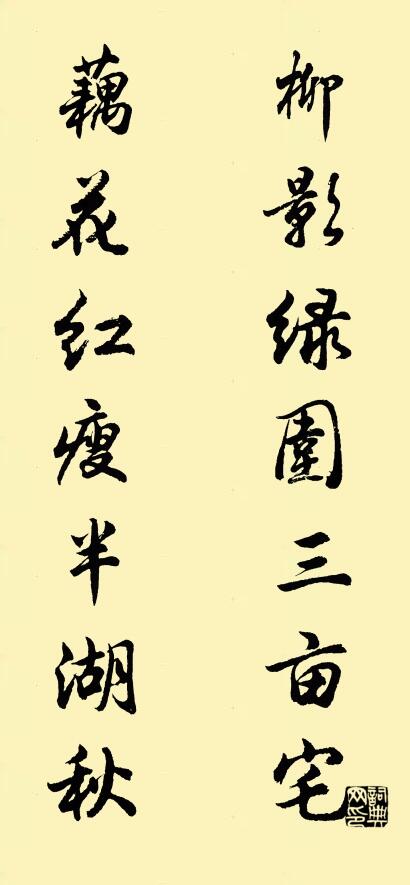 柳影绿围三亩宅
藕花红瘦半湖秋
詞典网印